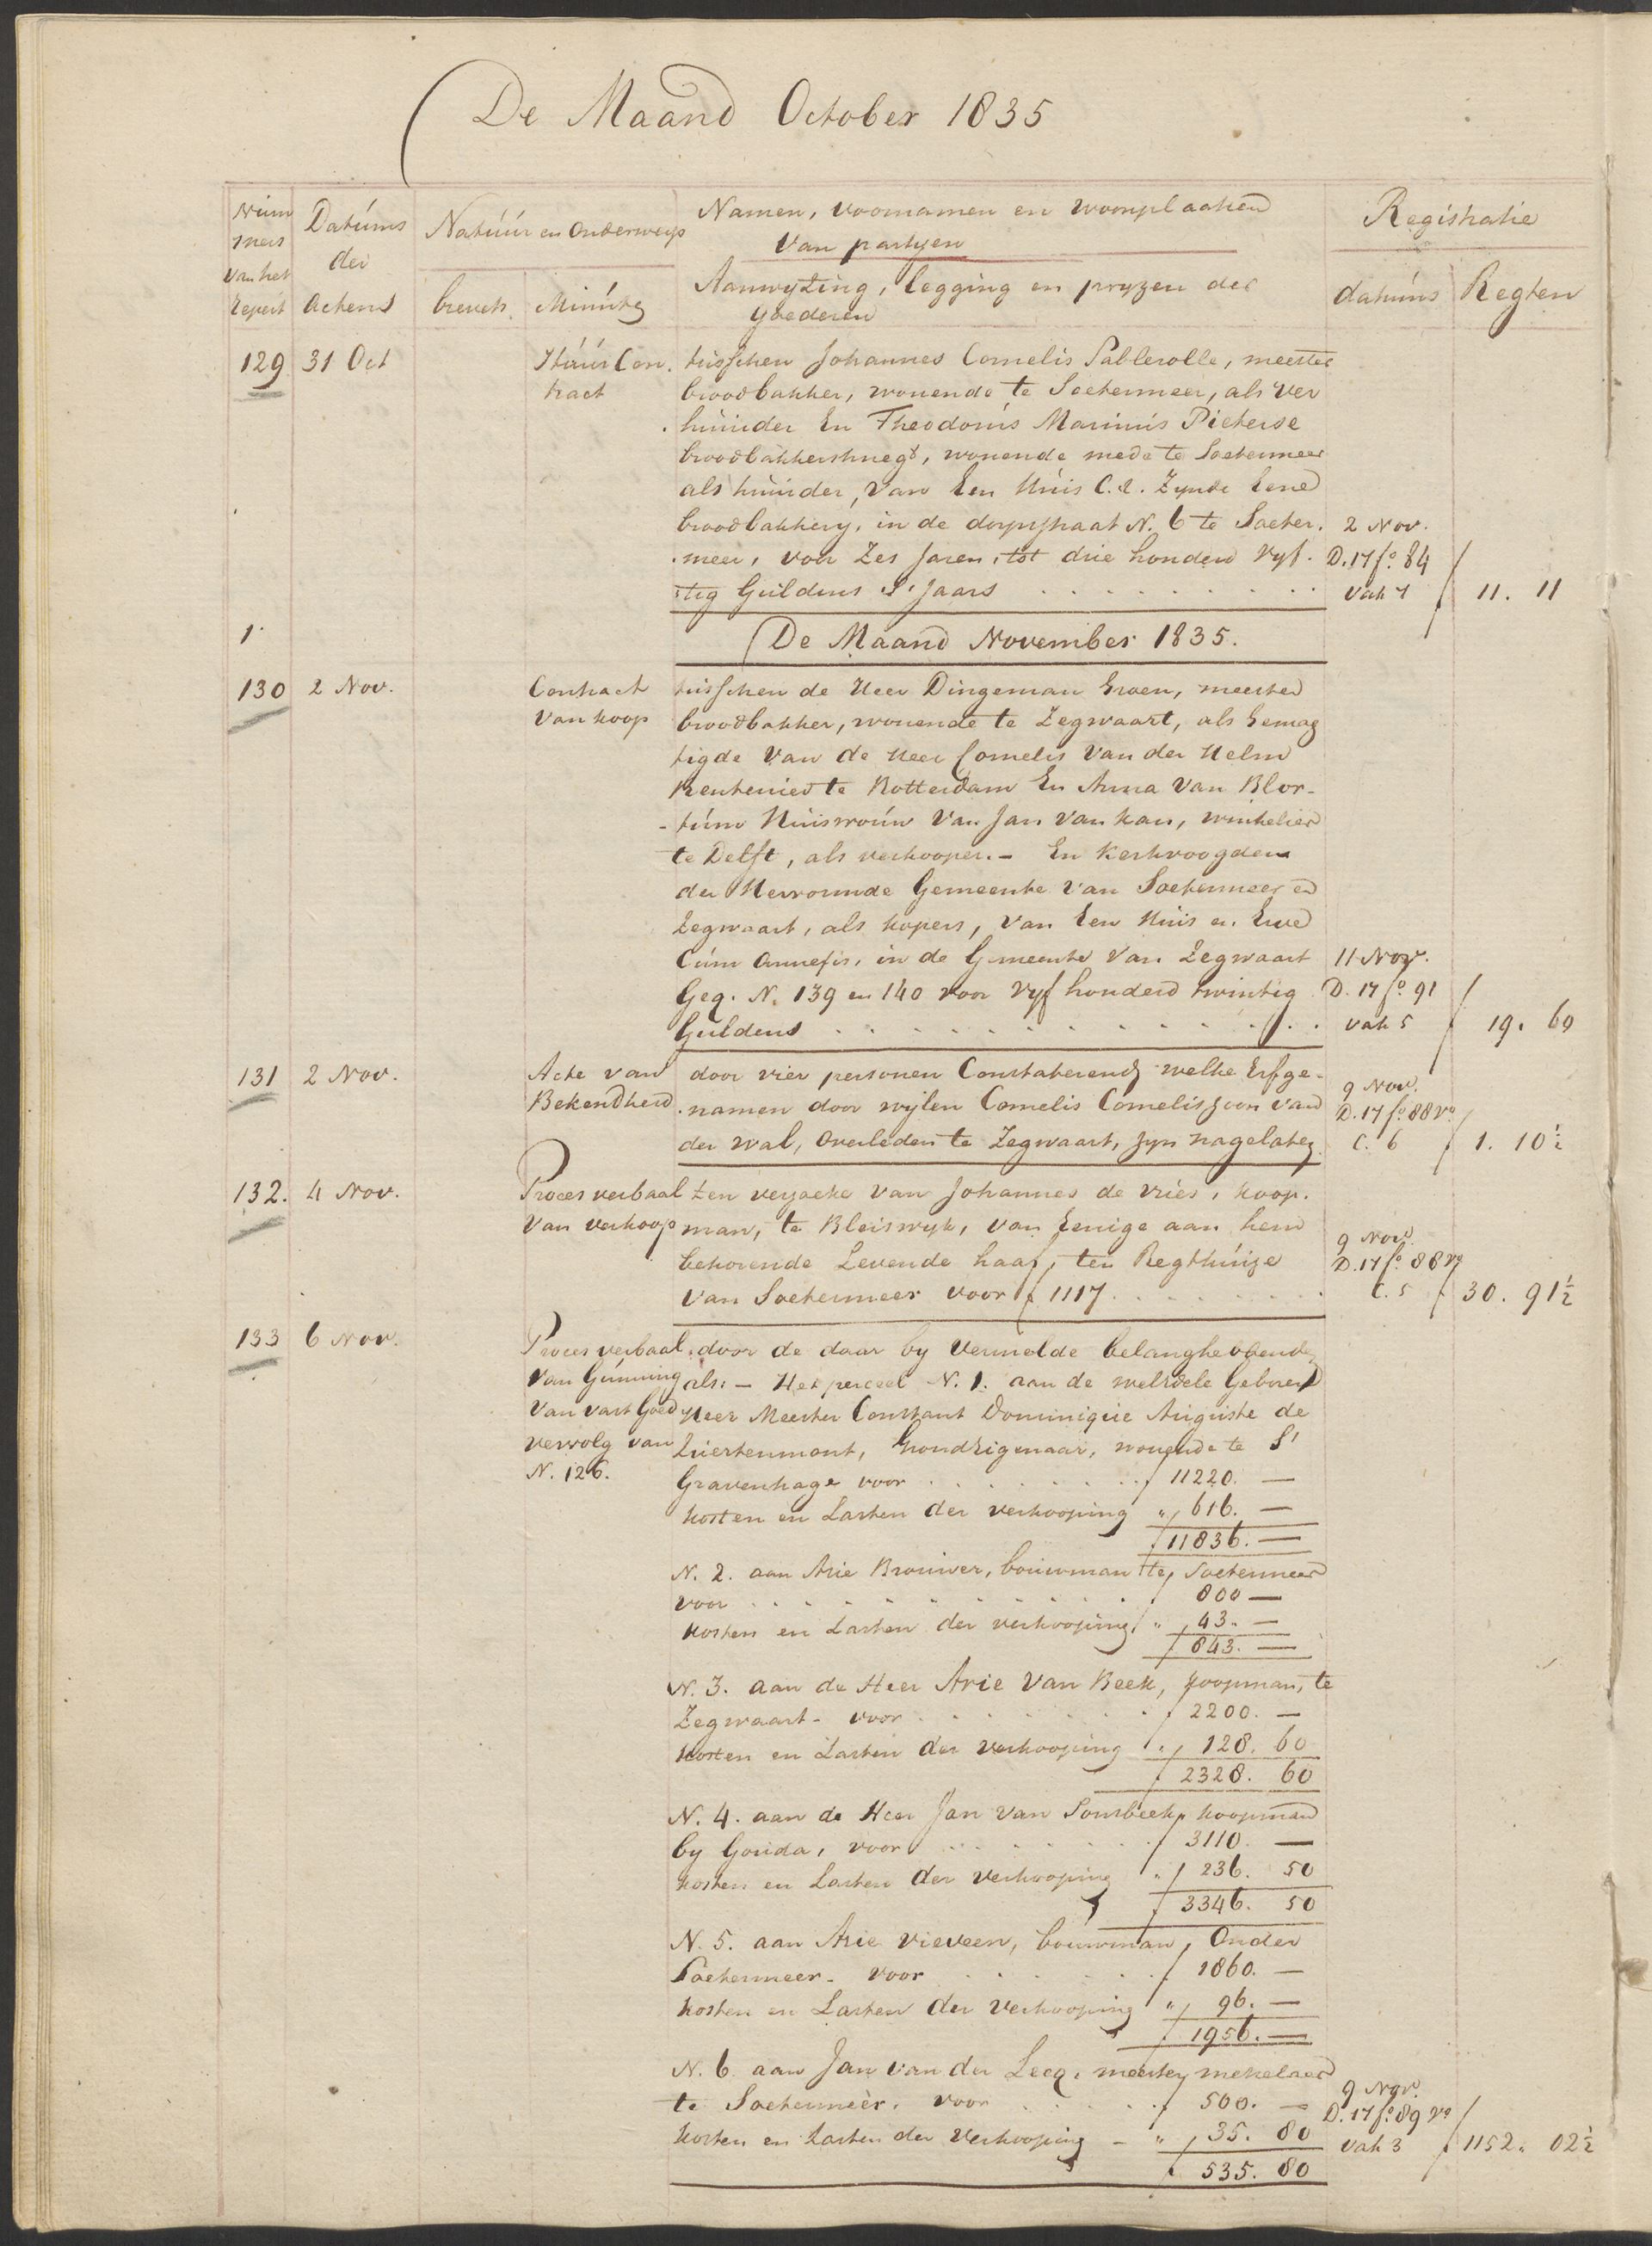 De Maand October 1835
Num
mers
van het
Repert
Datums
der
Actens
Natuur en Onderwerp
brevets. Minute
Namen, voornamen en woonplaatsen
van partyen
Aanwyzing, legging en pryzen der
goederen
Registratie
datums Regten
129 31 Oct Huur Con. tusschen Johannes Cornelis Sablerolle, meester
tract broodbakker, wonende te Soetermeer, als ver
huurder En Theodorus Marinus Pieterse
broodbakkersknegt, wonende mede te Soetermeer
als huurder, van Een Huis C.A. Zynde Eene
broodbakkery, in de dorpstraat N. 6 te Soeter. 2 Nov.
meer, voor Zes Jaren, tot drie honderd Vyf. D. 17 fo. 84
tig Guldens S'Jaars . . . . . . . . . . vak 7 f 11. 11
1.
De Maand November 1835.
130 2 Nov. Contract tusschen de Heer Dingeman Groen, meester
van koop broodbakker, wonende te Zegwaart, als Gemag
tigde van de Heer Cornelis van der Helm
Rentenier te Rotterdam En Anna van Blor-
-tum Huisvrouw van Jan van Kan, winkelier
te Delft, als verkooper. - En Kerkvoogden
der Hervormde Gemeente van Soetermeer en
Zegwaart, als kopers, van Een Huis en Erve
Cum Annexis, in de Gemeente van Zegwaart 11 Nov.
Geq. N. 139 en 140 voor Vyf honderd twintig D. 17 fo. 91
Guldens . . . . . . . . . . . . . vak 5 f 19. 60
131 2 Nov. Acte van door vier personen Constaterende welke Erfge-
Bekendheid. namen door wylen Cornelis Corneliszoon van 9 Nov. D. 17 fo. 88 vo.
der Wal, Overleden te Zegwaart, zyn nagelaten. C. 6 f 1. 10 ½
132. 4 Nov. Proces verbaal ten verzoeke van Johannes de Vries, koop.
van verkoop man, te Bleiswyk, van Eenige aan hem
9 Nov.
behorende Levende haaf, ten Regthuize D. 17 fo. 88 vo
van Soetermeer voor f 1117 . . . . . . . . C. 5 f 30. 91 ½
133 6 Nov. Proces verbaal. door de daar by vermelde belanghebbenden
van Gunning als: - Het perceel N. 1. aan de weledele Geboren
van vast Goed Heer Meester Constant Dominique Auguste de
vervolg van Quertenmont, GrondEigenaar, wonende te S'
N. 126. Gravenhage voor . . . . . . . f 11220. —
kosten en Lasten der verkooping " 616. —
f 11836. —
N. 2. aan Arie Brouwer, bouwman te, Soetermeer
voor . . . . . . . . . . . . f 800 —
kosten en Lasten der verkooping " 43. —
f 843. —
N. 3. aan de Heer Arie van Beek, koopman, te
Zegwaart - voor . . . . . . . f 2200. —
kosten en Lasten der verkooping " 128. 60
f 2328. 60
N. 4. aan de Heer Jan van Sonsbeek, koopman
by Gouda, voor . . . . . . f 3110. —
kosten en Lasten der verkooping " 236. 50
f 3346. 50
N. 5. aan Arie Vieveen, bouwman, Onder
Soetermeer - voor . . . . . . f 1860. —
kosten en Lasten der verkooping " 96. —
f 1956. —
N. 6 aan Jan van der Leeq, meester metselaar
te Soetermeer. voor . . . . . f 500. — 9 Nov. D. 17 fo. 89 vo
kosten en Lasten der Verkooping - " 35. 80 vak 3 f 1152. 02 ½
f 535. 80